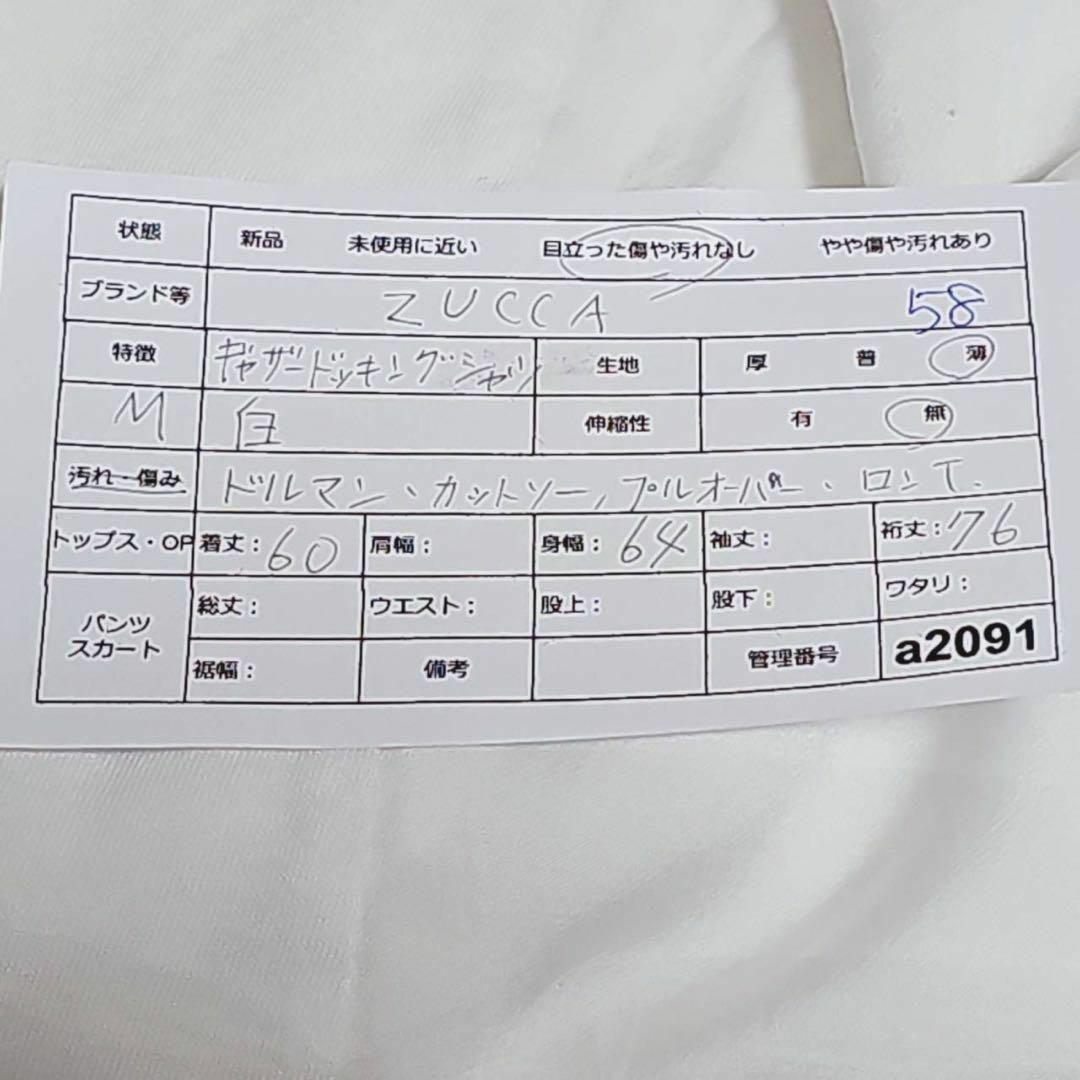 状態 新品 未使用に近い 目立った傷や汚れなし やや傷や汚れあり
ブランド等 ZUCCA 58
特徴 ギャザードッキングシャツ 生地 厚 普 薄
M 白 伸縮性 有 無
汚れ・傷み ドルマン、カットソー、プルオーバー、ロンT.
トップス・OP 着丈:60 肩幅: 身幅:64 袖丈: 裄丈:76
パンツ スカート 総丈: ウエスト: 股上: 股下: ワタリ:
裾幅: 備考 管理番号 a2091